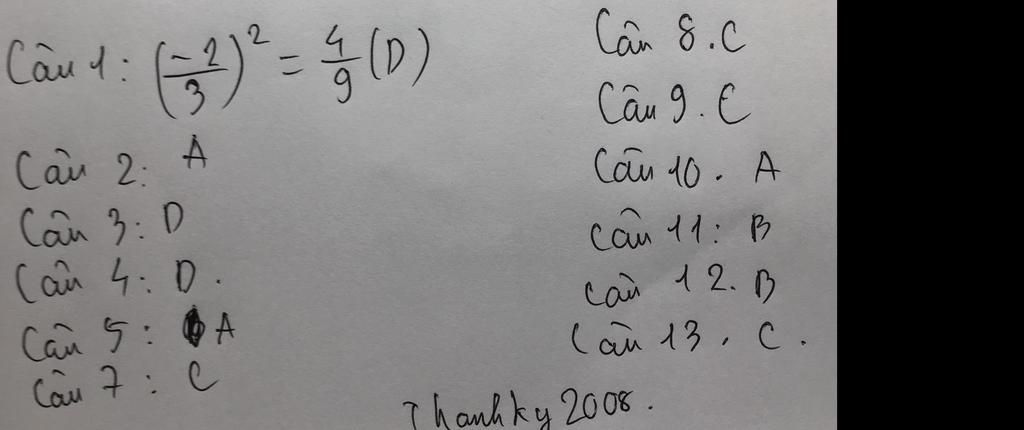 Câu 1: (-2/3)² = 4/9 (D)
Câu 2: A
Câu 3: D
Câu 4: D.
Câu 5: A
Câu 7: C
Câu 8. C
Câu 9. C
Câu 10. A
Câu 11: B
Câu 12. B
Câu 13. C.
Thanhky2008.